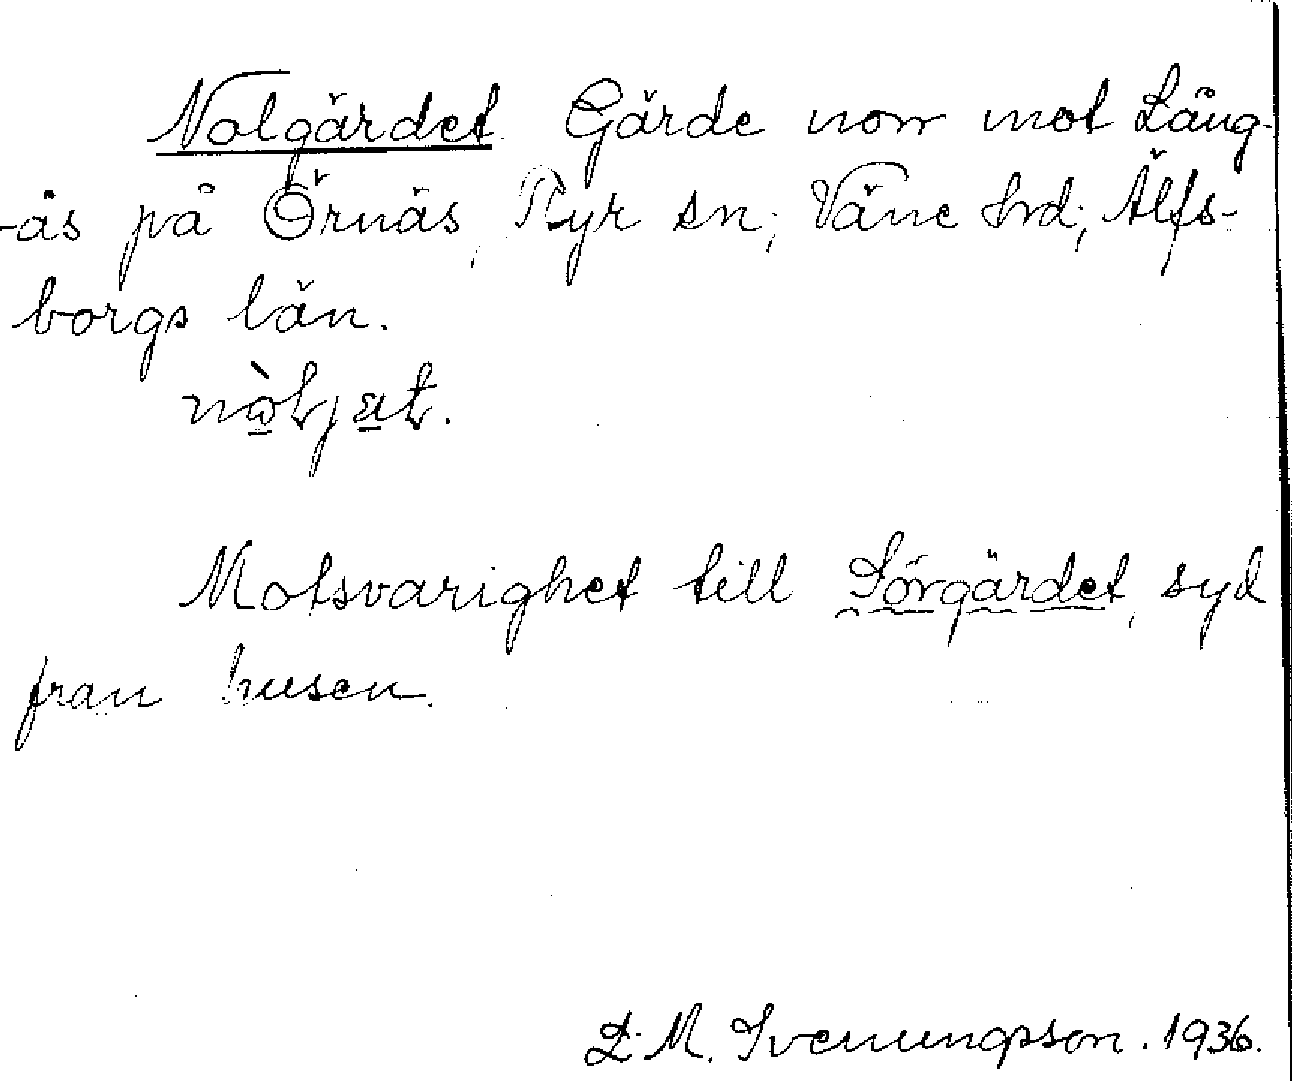 Nolgärdet. Gärde norr mot Lång-
-ås på Örnäs, Ryr sn; Väne hd; Älfs-
borgs län.
Motsvarighet till Sörgärdet, syd
fran husen.
D. M. Svenungsson. 1936.